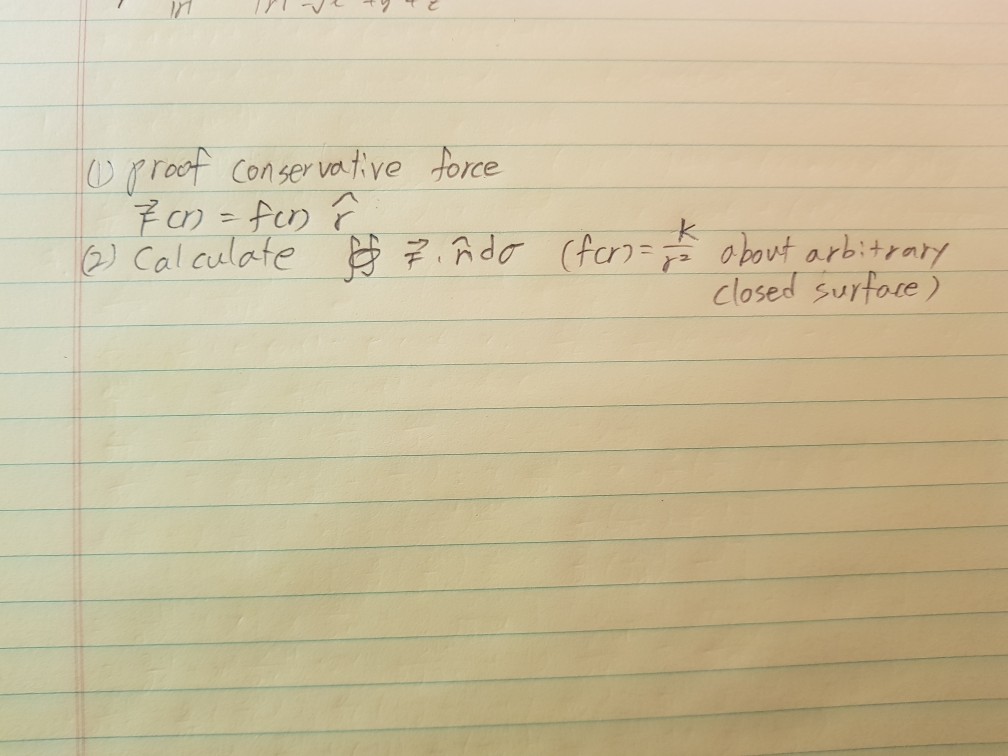 (1) proof conservative force
F⃗(r) = f(r) r̂
(2) Calculate ∯ F⃗ · n̂ dσ (f(r) = k/r² about arbitrary
closed surface)